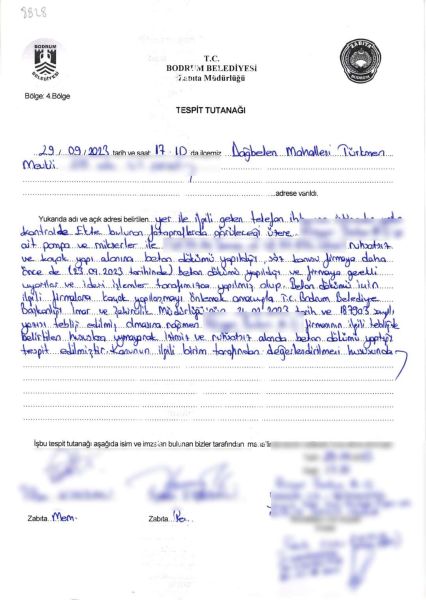 8828
BODRUM
BELEDİYESİ
T.C.
BODRUM BELEDİYESİ
Zabıta Müdürlüğü
ZABITA
BODRUM
Bölge: 4.Bölge
TESPİT TUTANAĞI
29/09/2023 tarih ve saat 17.10 da ilçemiz Dağbelen Mahallesi Türkmen
Mevkii
adresine varıldı.
Yukarıda adı ve açık adresi belirtilen yer ile ilgili gelen telefon
kontrolde Ekte bulunan fotoğraflarda görüleceği üzere
ait pompa ve mikserler ile ruhsatsız
ve kaçak yapı alanına beton dökümü yapıldığı, söz konusu firmaya daha
önce de (23.09.2023 tarihinde) beton dökümü yapıldığı ve firmaya gerekli
uyarılar ve idari işlemler tarafımızca yapılmış olup. Beton dökümü için
ilgili firmalara kaçak yapılaşmayı önlemek amacıyla T.C. Bodrum Belediye
Başkanlığı İmar ve Şehircilik Müdürlüğünün tarih ve 187903 sayılı
yazısı tebliğ edilmiş olmasına rağmen firmasının ilgili tebliğde
belirtilen hususlara uymayarak izinsiz ve ruhsatsız alanda beton dökümü yaptığı
tespit edilmiştir. Konunun ilgili birim tarafından değerlendirilmesi hususunda
İşbu tespit tutanağı aşağıda isim ve imzaları bulunan bizler tarafından
Zabıta Mem. Zabıta